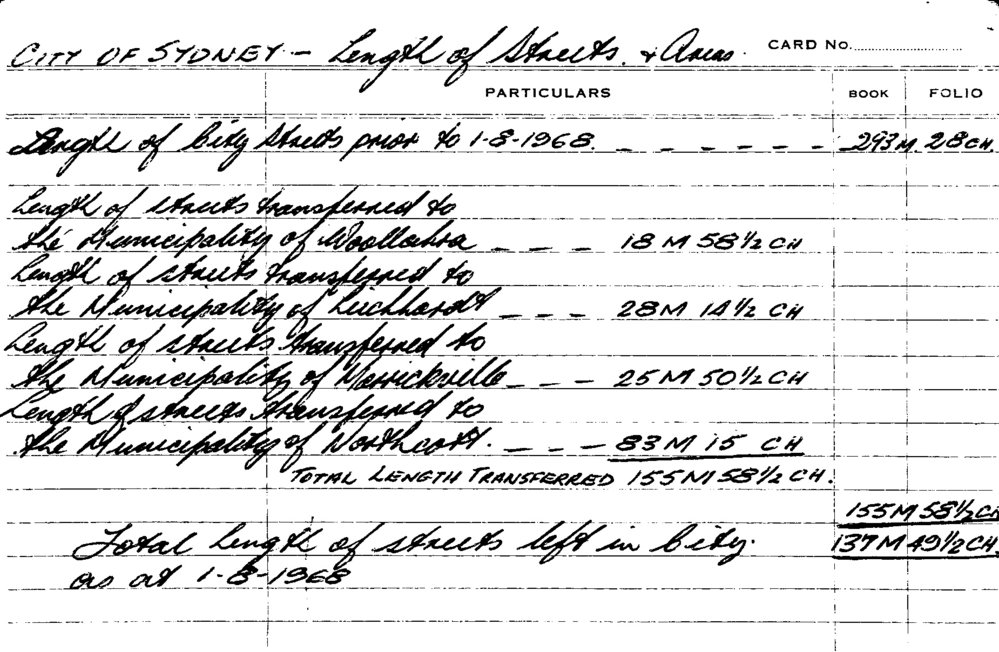 CITY OF SYDNEY - Length of Streets. & Areas. CARD No.
PARTICULARS BOOK FOLIO
Length of City Streets prior to 1-8-1968. - - - - - - 293M. 28CH.
Length of streets transferred to
the Municipality of Woollahra - - - 18 M 58½ CH
Length of streets transferred to
the Municipality of Leichhardt - - - 28M 14½ CH
Length of streets transferred to
the Municipality of Marrickville - - - 25M 50½ CH
Length of streets transferred to
the Municipality of Northcott. - - - 83M 15 CH
TOTAL LENGTH TRANSFERRED 155M 58½ CH.
155M 58½ CH
Total length of streets left in City. 137M 49½ CH.
as at 1-8-1968